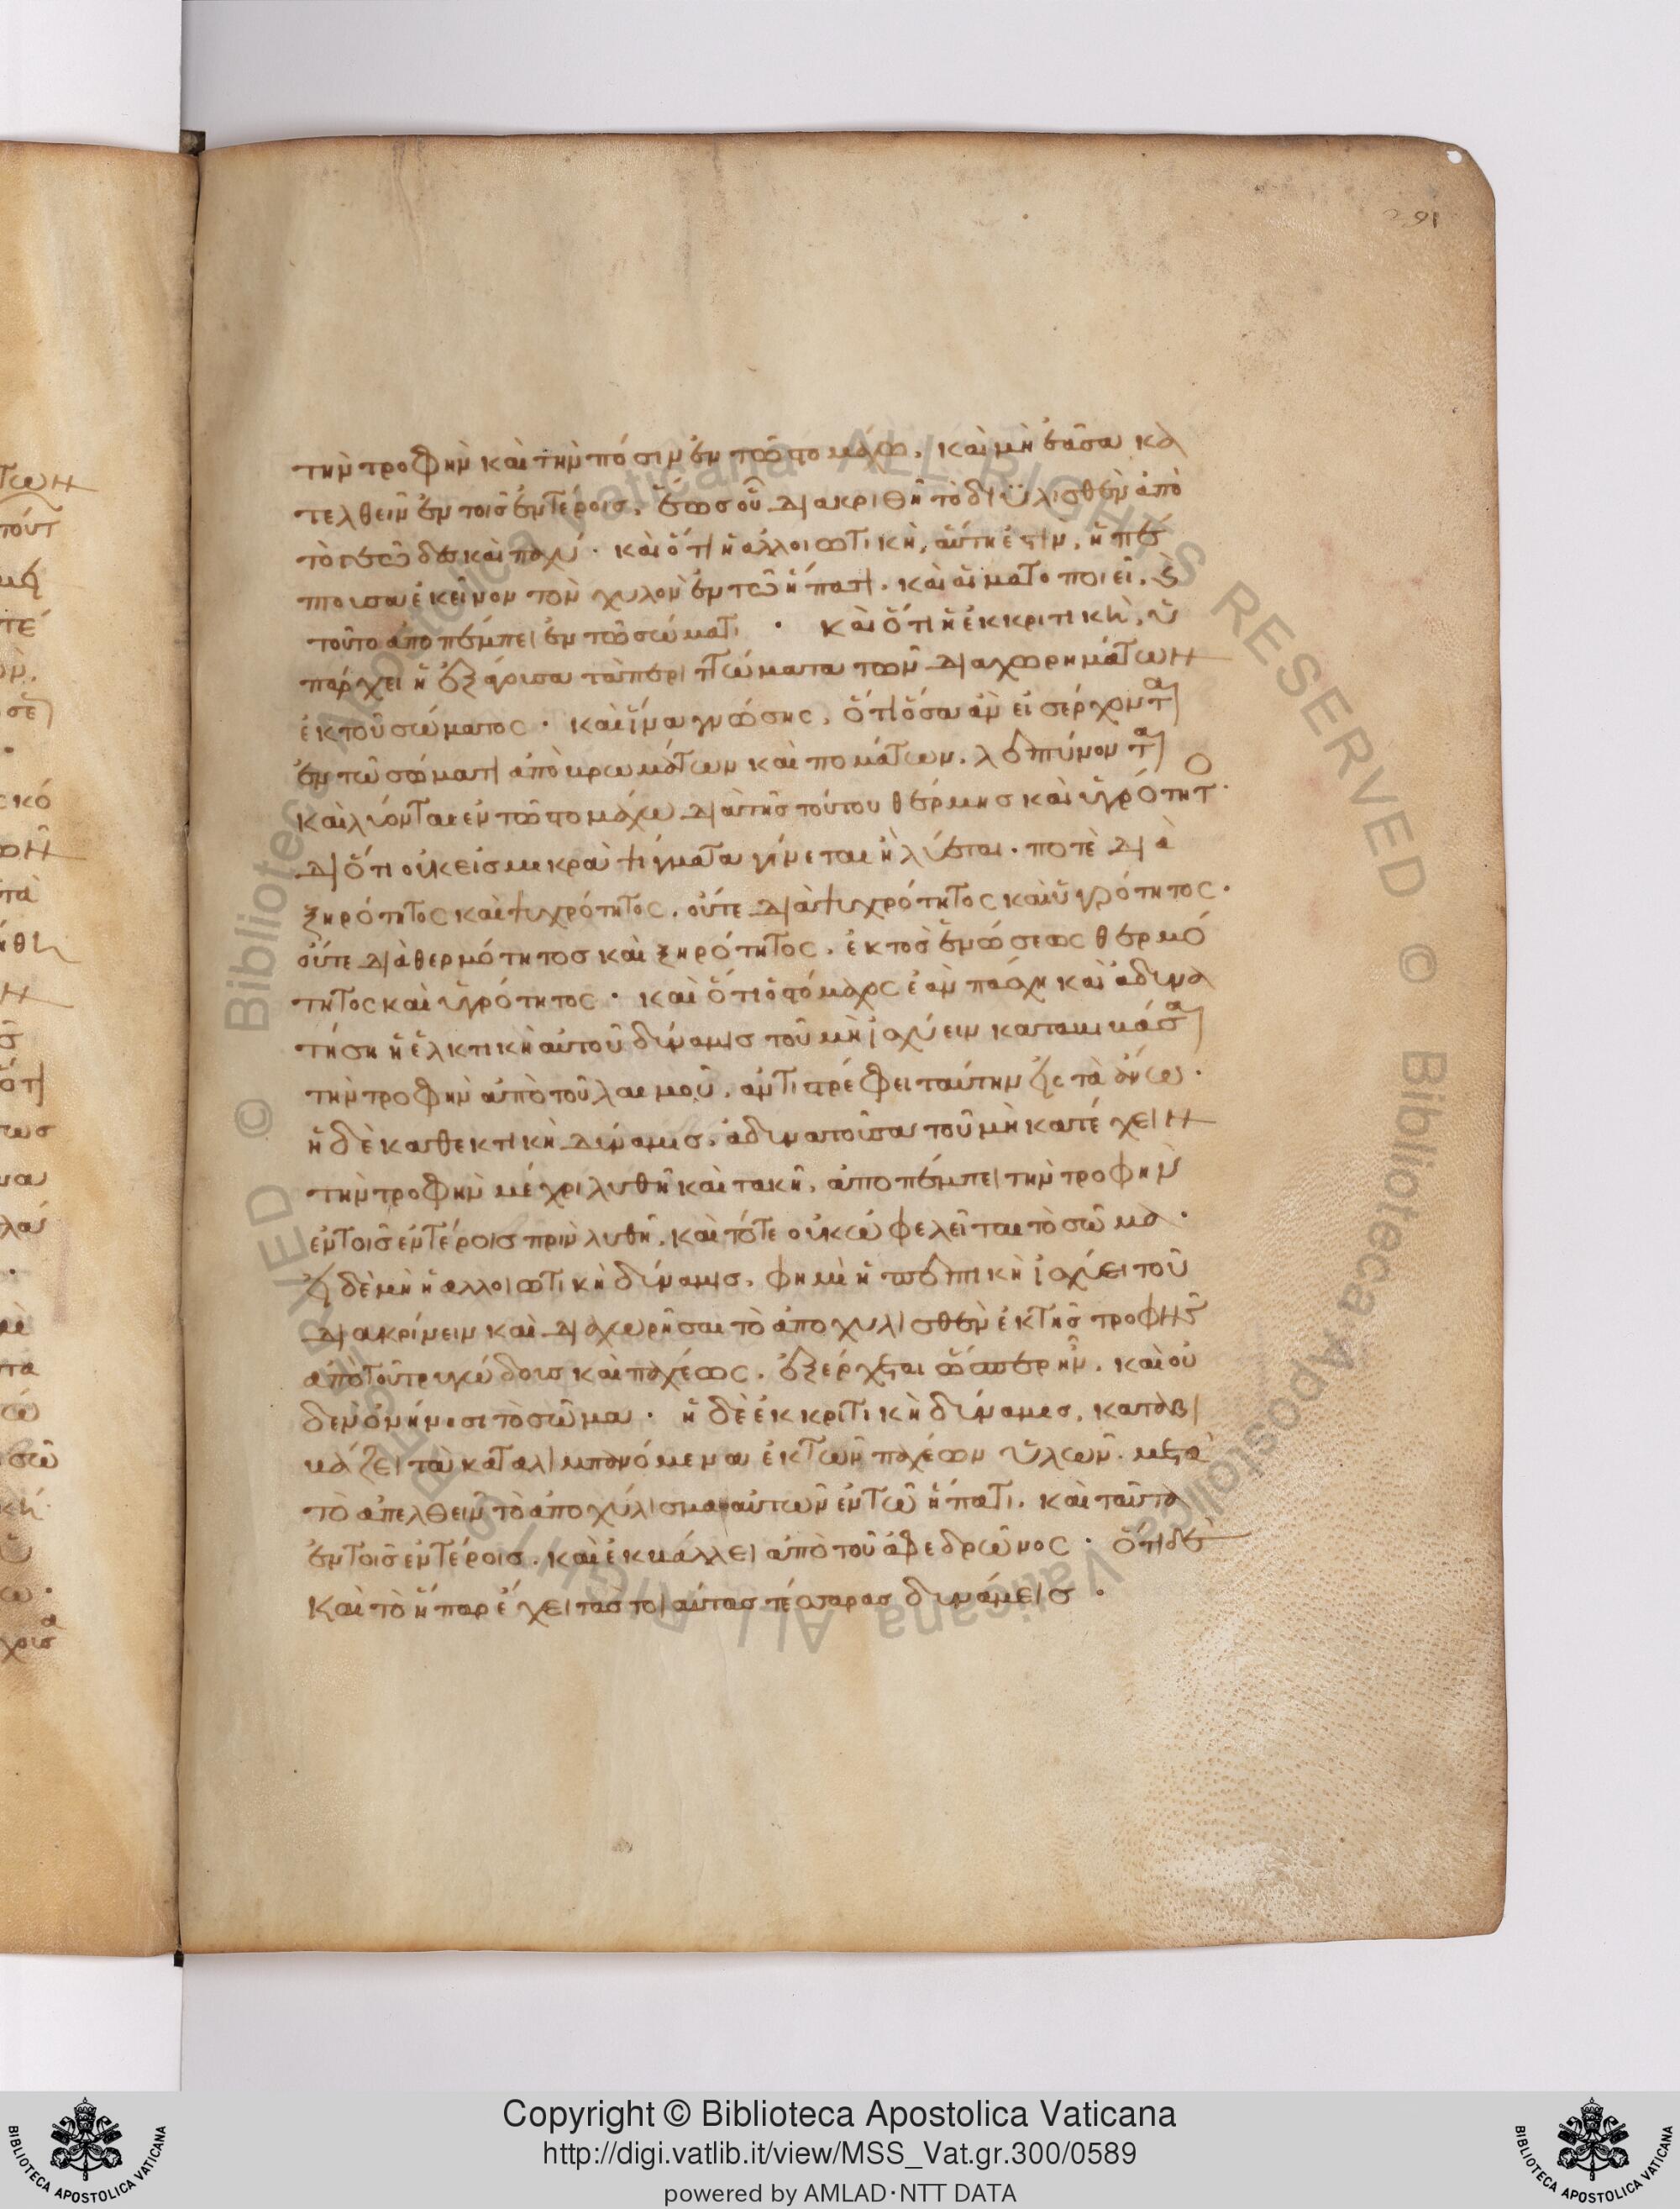 291
τὴν τροφὴν καὶ τὴν πόσιν ἐν τῶ στομάχω, καὶ μὴ ἐῶσα κα
τελθεῖν ἐν τοῖς ἐντέροις, ἕως οὗ διακριθῆ τὸ διϋλισθὲν ἀπὸ
καὶ παχύ · καὶ ὅτι ἡ ἀλλοιωτικὴ, αὕτη ἐστὶν, ἡ πέ
πτουσα ἐκεῖνον τὸν χυλὸν ἐν τῶ ἥπατι. καὶ αἱματοποιεῖ,
τοῦτο ἀποπέμπει ἐν τῶ σώματι · καὶ ὅτι ἡ ἐκκριτικὴ, ὑ
πάρχει ἡ τὰ περιττώματα τῶν διαχωρημάτων
ἐκ τοῦ σώματος · καὶ ἵνα γνώσης, ὅτι ὅσα ἂν εἰσέρχονται
ἐν τῶ σώματι ἀπὸ βρωμάτων καὶ πομάτων, λεπτύνονται
καὶ λύονται ἐν τῶ στομάχω διὰ τῆς τούτου θέρμης καὶ ὑγρότητ
διότι οὐκ εἰς μικρὰ τμίγματα γίνεται ἢ λύεται · ποτὲ διὰ
ξηρότητος καὶ ψυχρότητος, οὔτε διὰ ψυχρότητος καὶ ὑγρότητος ·
οὔτε διὰ θερμότητος καὶ ξηρότητος, ἐκτὸς ἑνώσεως θερμό
τητος καὶ ὑγρότητος · καὶ ὅτι ὁ στόμαχος ἐὰν πάσχη καὶ ἀδυνα
τήση ἡ ἑλκτικὴ αὐτοῦ δύναμις τοῦ μὴ ἰσχύειν καταβιβάσαι
τὴν τροφὴν ἀπὸ τοῦ λαιμοῦ, ἀντιστρέφει ταύτην εἰς τὰ ἄνω ·
ἡ δὲ καθεκτικὴ δύναμις, ἀδυνατοῦσα τοῦ μὴ κατέχειν
τὴν τροφὴν μέχρι λυθῆ καὶ τακῆ, ἀποπέμπει τὴν τροφὴν
ἐν τοῖς ἐντέροις πρὶν λυθῆ, καὶ τότε οὐκ ὠφελεῖται τὸ σῶμα ·
εἰ δὲ μὴ ἡ ἀλλοιωτικὴ δύναμις, φημὶ ἡ πεπτικὴ ἰσχύει τοῦ
διακρίνειν καὶ διαχωρῆσαι τὸ ἀποχυλισθὲν ἐκ τῆς τροφῆς
ἀπὸ τοῦ τρυγώδους καὶ παχέως, ἐξέρχεται ὥσπερ ἦν, καὶ οὐ
δὲν ὀνήνησι τὸ σῶμα · ἡ δὲ ἐκκριτικὴ δύναμις, καταβι
βάζει τὰ καταλιμπανόμενα ἐκ τῶν παχέων ὑλῶν, μετὰ
τὸ ἀπελθεῖν τὸ ἀποχύλισμα αὐτῶν ἐν τῶ ἥπατι, καὶ ταῦτα
ἐν τοῖς ἐντέροις, καὶ ἐκβάλλει ἀπὸ τοῦ ἀφεδρῶνος · ὅτι δὲ
καὶ τὸ ἧπαρ ἔχει τὰς τοιαύτας τέσσαρας δυνάμεις ·
Copyright © Biblioteca Apostolica Vaticana
http://digi.vatlib.it/view/MSS_Vat.gr.300/0589
powered by AMLAD·NTT DATA